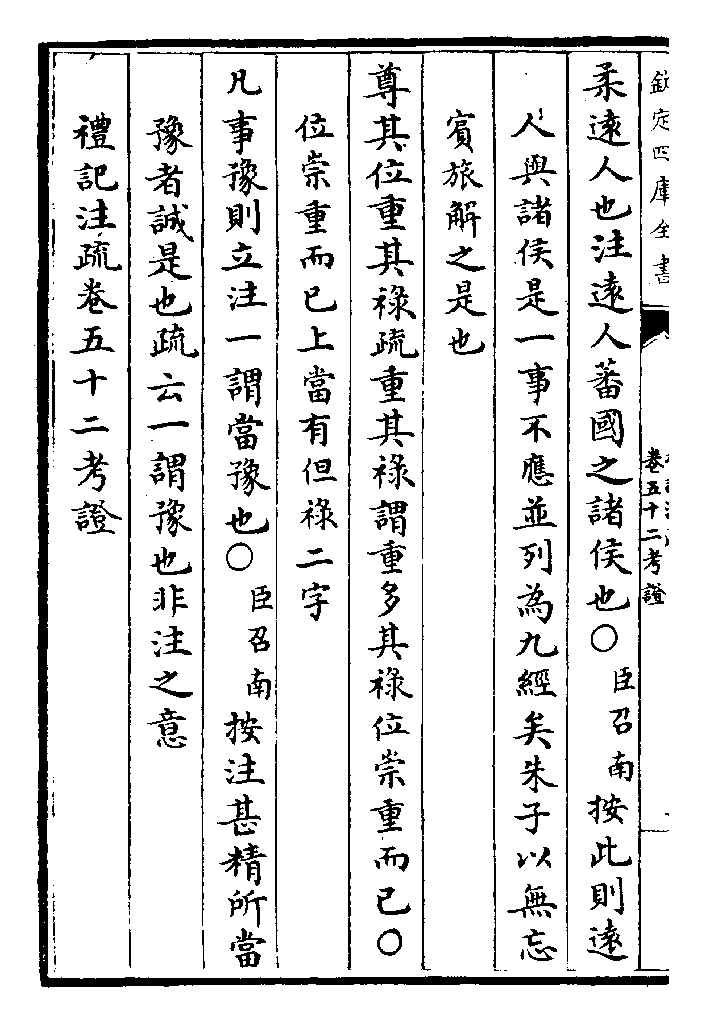 欽定四庫全書
卷五十二考證
柔遠人也注遠人蕃國之諸侯也〇臣召南按此則遠
人與諸侯是一事不應並列為九經矣朱子以無忘
賓旅解之是也
尊其位重其祿疏重其祿謂重多其祿位崇重而已〇
位崇重而已上當有但祿二字
凡事豫則立注一謂當豫也〇臣召南按注甚精所當
豫者誠是也疏云一謂豫也非注之意
禮記注疏卷五十二考證